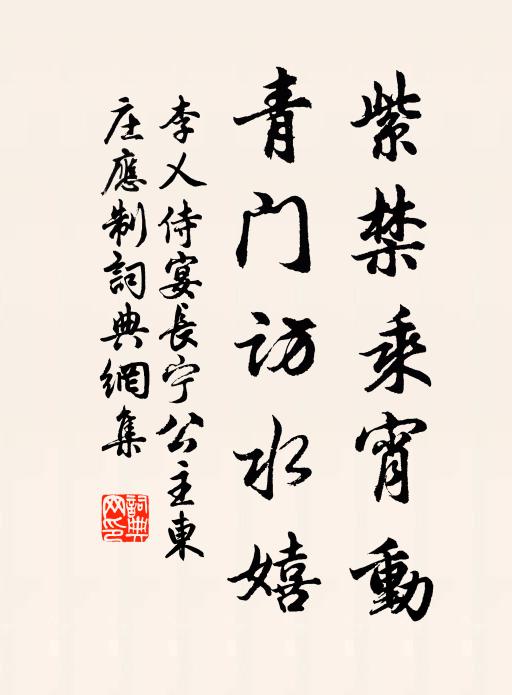 紫禁乘宵動
青门訪水嬉
李乂侍宴長宁公主東
庄應制詞典網集
詞典
网印